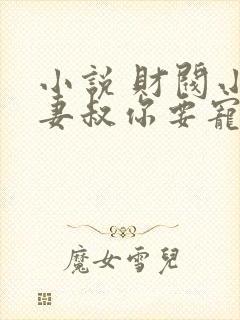 小說財閥小
妻叔你要寵
魔女雪兒